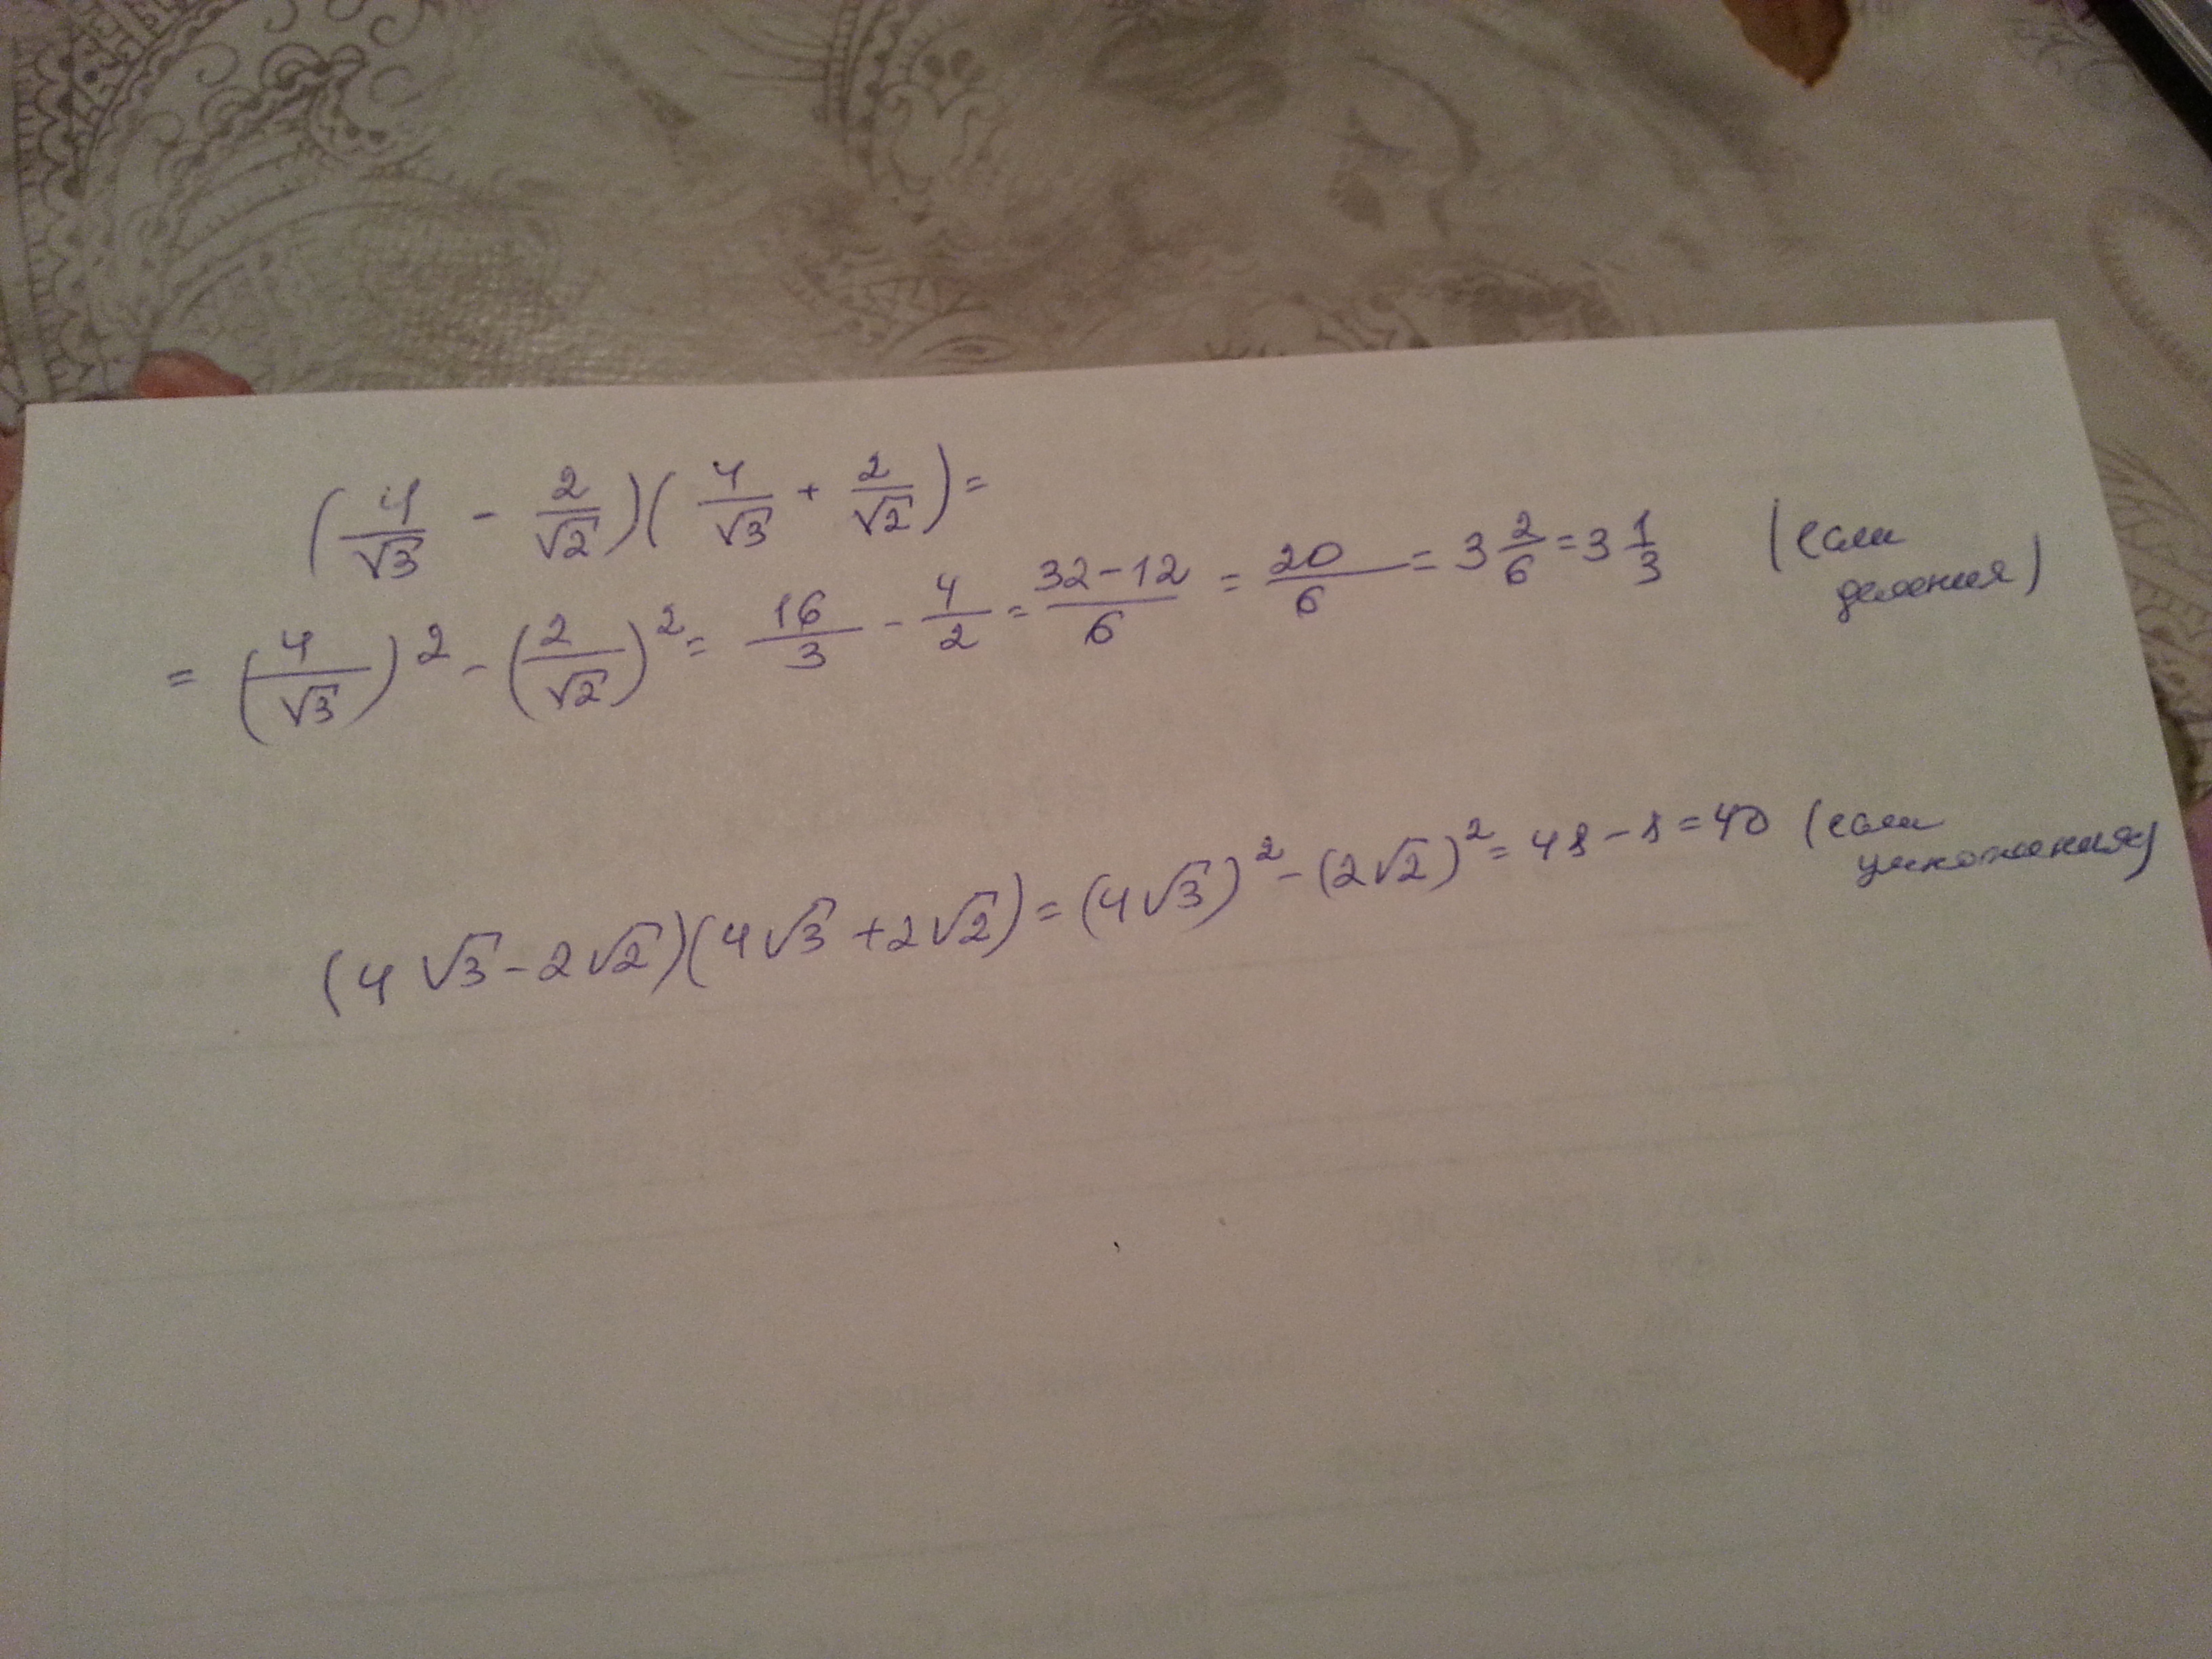 (4/√3 - 2/√2)(4/√3 + 2/√2) =
= (4/√3)² - (2/√2)² = 16/3 - 4/2 = 32-12/6 = 20/6 = 3 2/6 = 3 1/3 (если
деления)
(4√3 - 2√2)(4√3 + 2√2) = (4√3)² - (2√2)² = 48 - 8 = 40 (если
умножения)